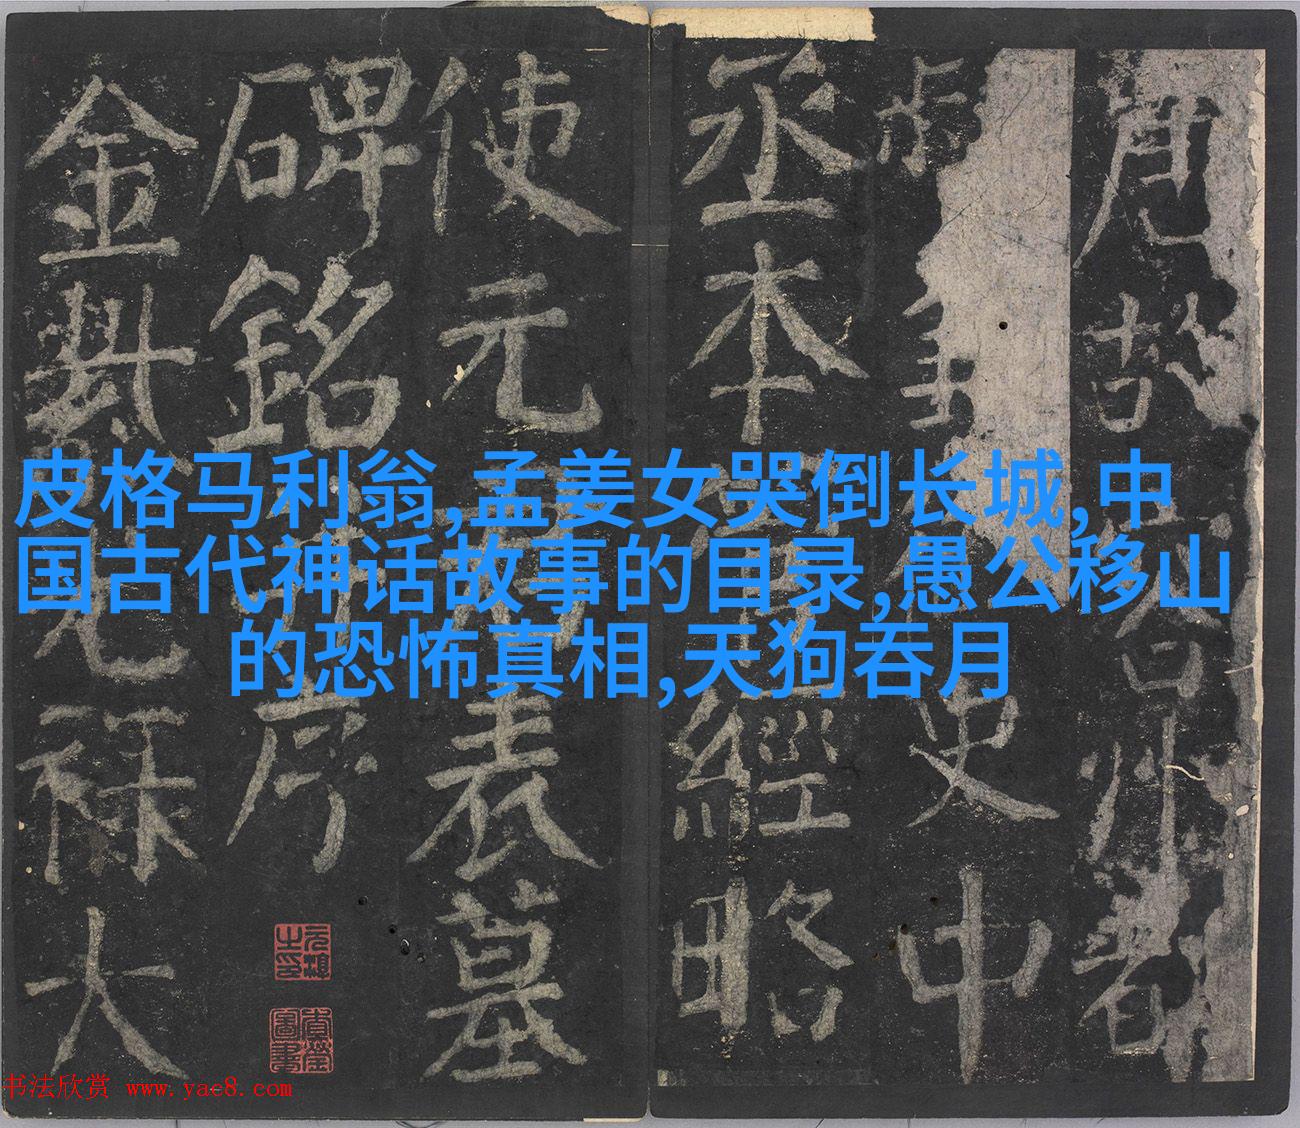 唐故容州都
史中
丞本管經略
使元君表墓
碑銘并序
金紫光祿大
皮格马利翁,孟姜女哭倒长城,中
国古代神话故事的目录,愚公移山
的恐怖真相,天狗吞月
书法欣赏 www.yac8.com